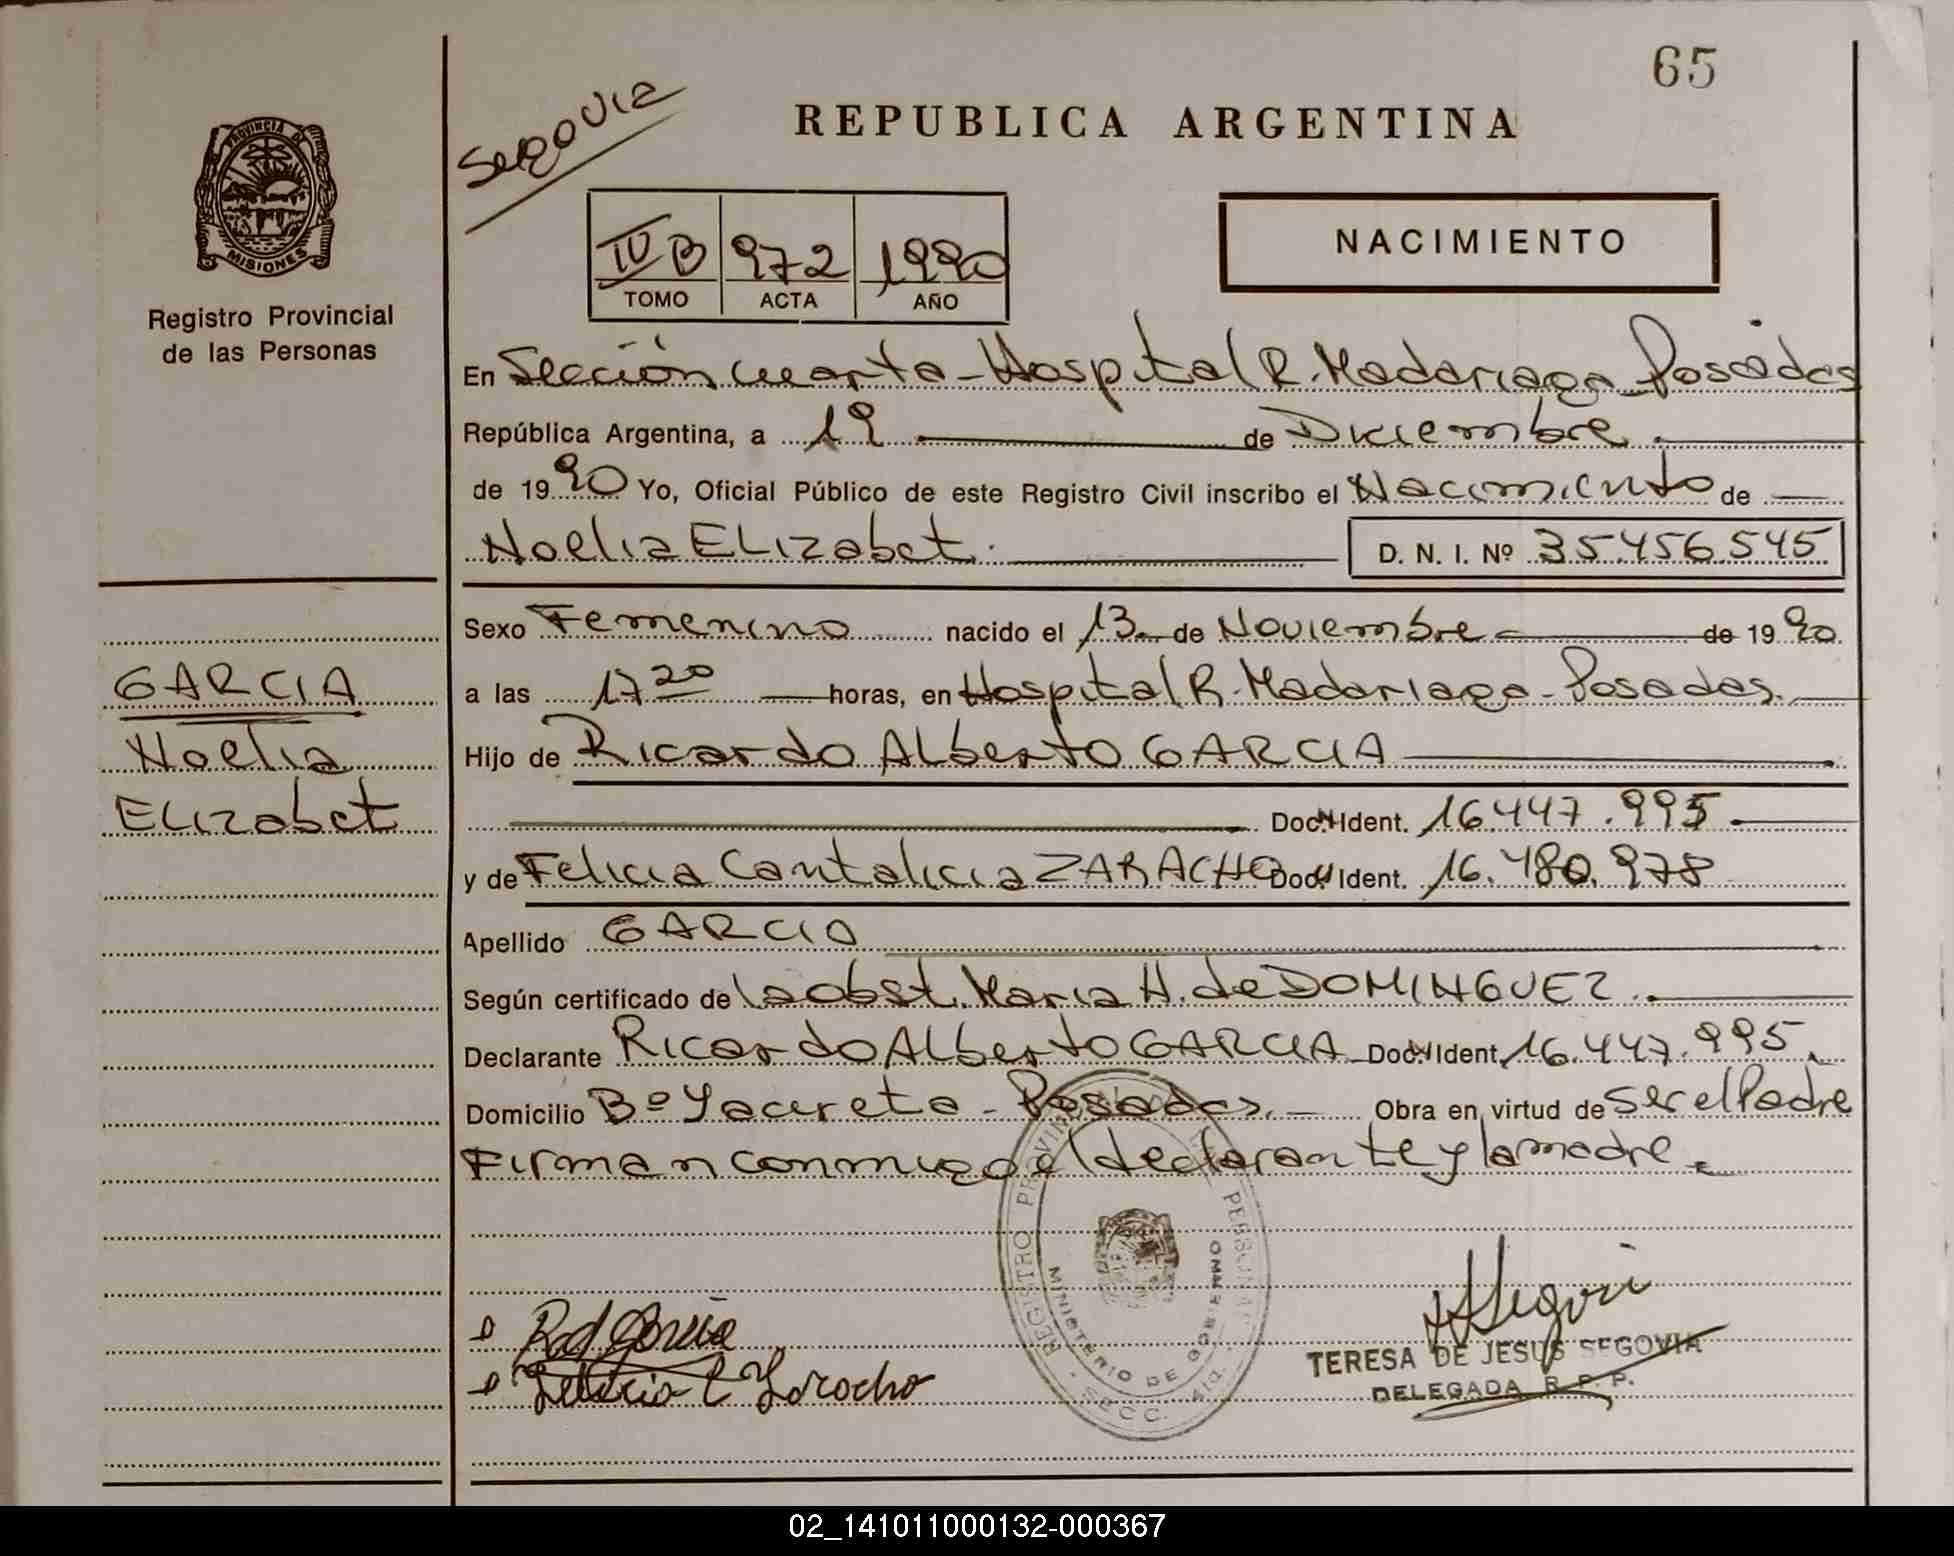 65
Segovia
REPUBLICA ARGENTINA
PROVINCIA DE
MISIONES
Registro Provincial
de las Personas
IV B 972 1990
TOMO ACTA AÑO
NACIMIENTO
En Sección Cuarta - Hospital R. Madariaga Posadas
República Argentina, a 19 de Diciembre
de 1990 Yo, Oficial Público de este Registro Civil inscribo el Nacimiento de
Noelia ELizabet. D. N. I. Nº 35.456.545
Sexo Femenino nacido el 13 de Noviembre de 1990
a las 17 20 horas, en Hospital R. Madariaga - Posadas.
GARCIA
Noelia
ELizabet
Hijo de Ricardo ALberto GARCIA
Doc. Ident. 16.447.995
y de Felicia Cantalicia ZARACHO Doc. Ident. 16.480.978
Apellido GARCIA
Según certificado de la obst. Maria H. de DOMINGUEZ.
Declarante Ricardo ALberto GARCIA Doc. Ident. 16.447.995.
Domicilio Bº Yacireta - Posadas. Obra en virtud de ser el Padre
Firman conmigo el declarante y la madre.
REGISTRO PROVINCIAL PERSONAS
MINISTERIO DE GOBIERNO
SECC. 4ta.
TERESA DE JESUS SEGOVIA
DELEGADA R. P. P.
02_141011000132-000367